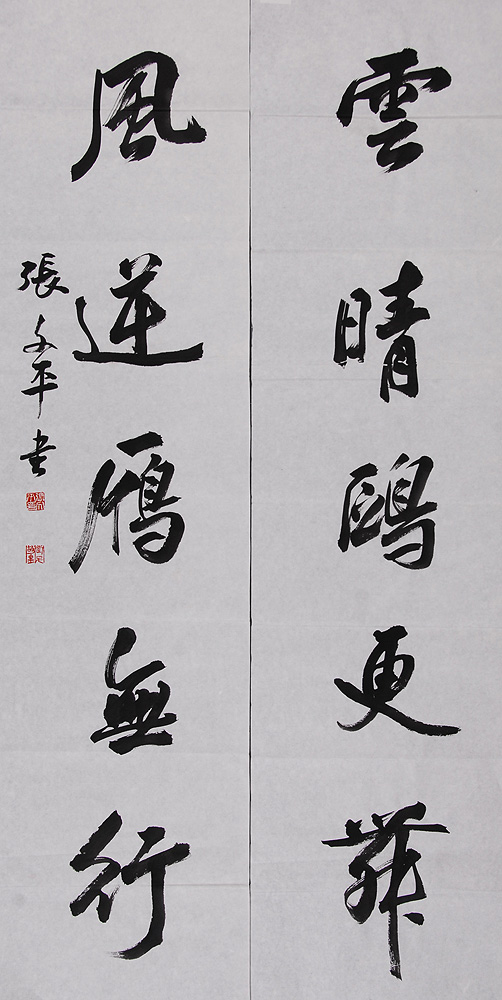 雲晴鷗更舞
風逆雁無行
張文平书